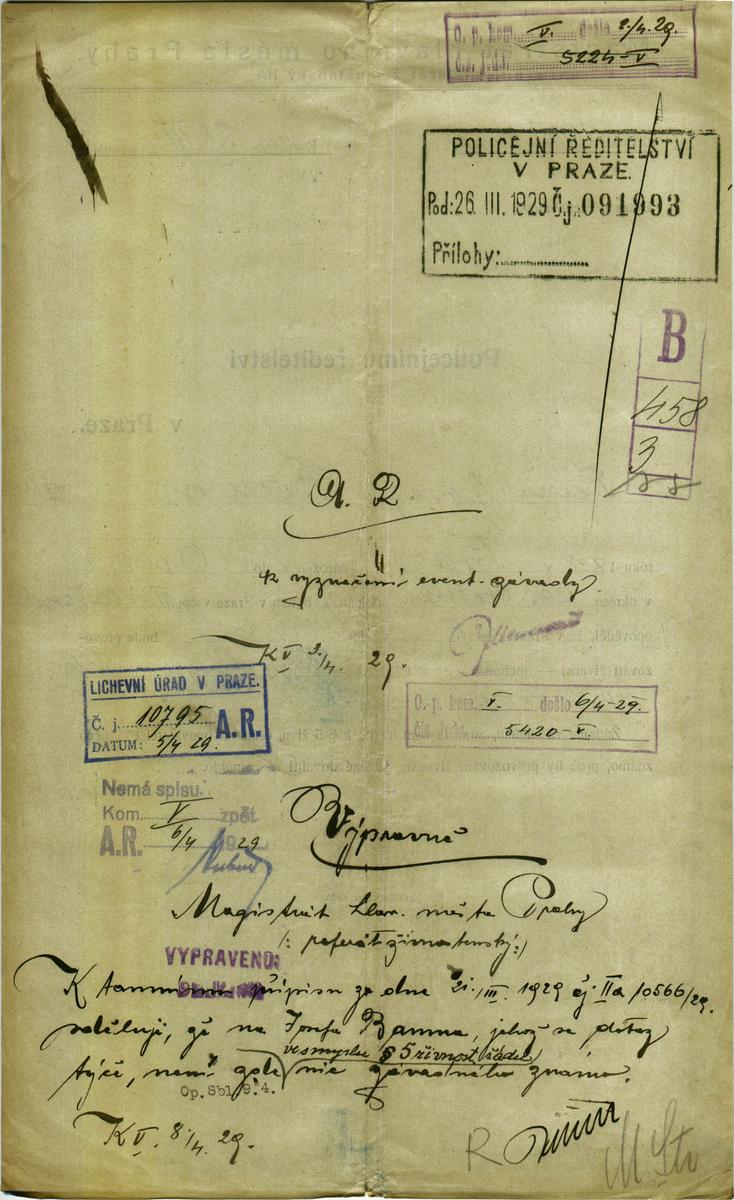 O. p. kom. V. došlo 2/4 29.
č. j. odd. 5224-V
POLICEJNÍ ŘEDITELSTVÍ
V PRAZE.
Pod: 26. III. 1929 Č.j. 091993
Přílohy:
B
458
3
A. R.
k vyznačení event. závady.
KV 3/4. 29.
LICHEVNÍ ÚŘAD V PRAZE.
Č. j. 10795 A.R.
DATUM: 5/4 29.
O. p. kom. V. došlo 6/4-29.
5420-V.
Nemá spisu.
Kom. V zpět
A.R. 6/4 1929
Výpravně
Magistrát hlav. města Prahy
/: referát živnostenský :/
VYPRAVENO:
K tamnímu přípisu ze dne 21./III. 1929 čj. IIa/0566/29.
sděluji, že na Josefa Bamma, jehož se dotaz
ve smyslu § 5 živnost. řádu
týče, není zde nic závadného známo.
Op. Sbl 9.4.
KV. 8/4. 29.
R